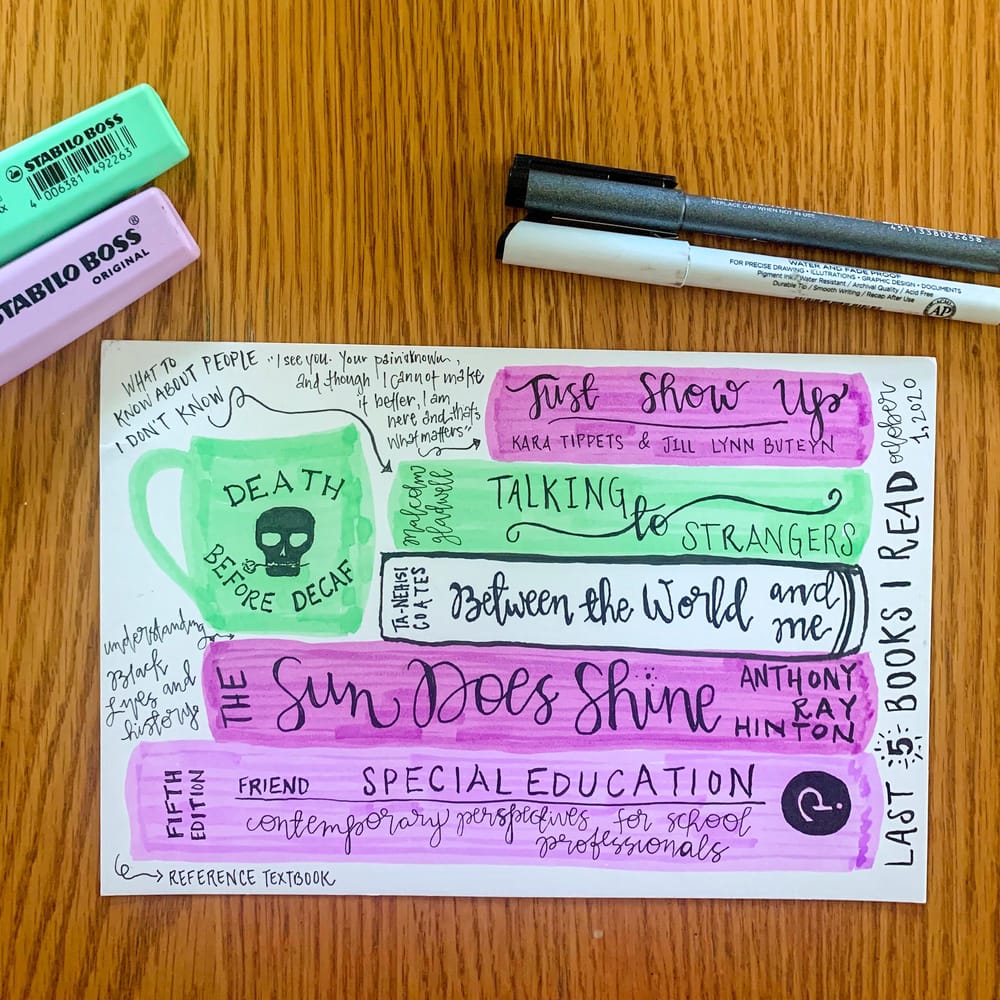 STABILO BOSS
4 006381 492263
STABILO BOSS®
ORIGINAL
REPLACE CAP WHEN NOT IN USE
4511338022658
WATER AND FADE PROOF
FOR PRECISE DRAWING • ILLUTRATIONS • GRAPHIC DESIGN • DOCUMENTS
Pigment Ink/Water Resistant / Archival Quality / Acid Free
Durable Tip / Smooth Writing / Recap After Use
AP
WHAT TO
KNOW ABOUT PEOPLE
I DON'T KNOW
"I see you. Your pain is known,
and though I cannot make
it better, I am
here and that's
what matters"
Just Show Up
KARA TIPPETS & JILL LYNN BUTEYN
malcolm
gladwell
TALKING
to
STRANGERS
DEATH
BEFORE DECAF
TA-NEHISI
COATES
Between the World and
me
understanding
Black
lives and
history
THE
Sun Does Shine
ANTHONY
RAY
HINTON
FIFTH
EDITION
FRIEND SPECIAL EDUCATION
contemporary perspectives for school
professionals
P.
REFERENCE TEXTBOOK
LAST 5 BOOKS I READ
october
1, 2020